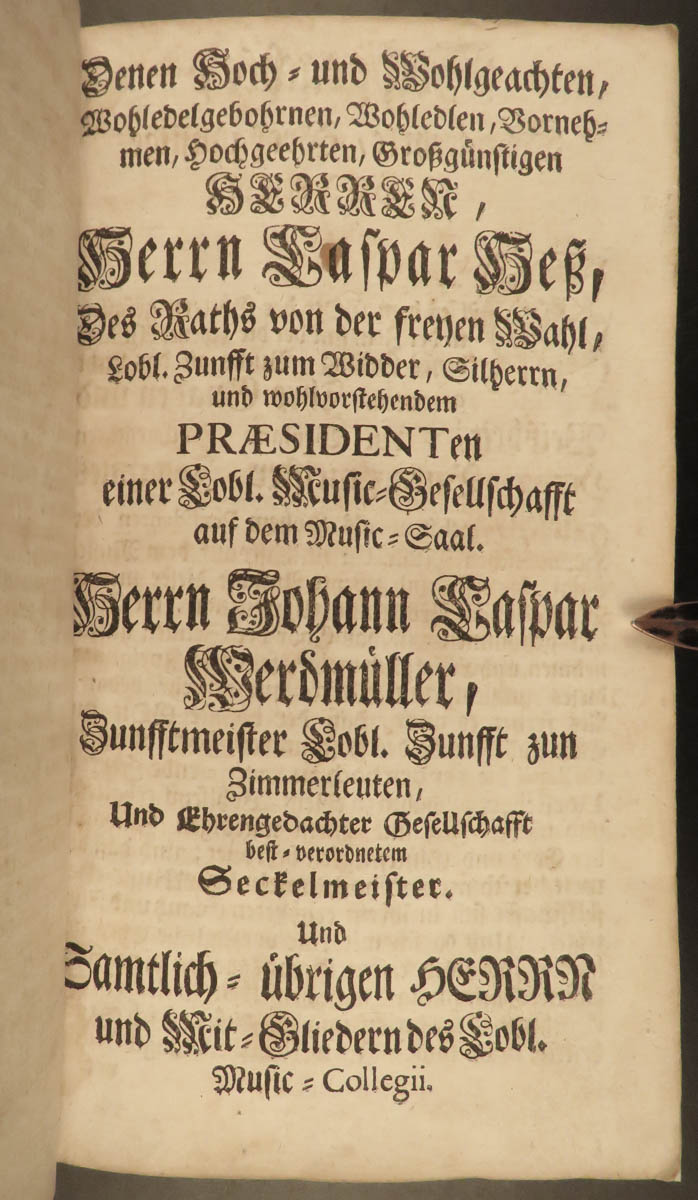 Denen Hoch- und Wohlgeachten,
Wohledelgebohrnen, Wohledlen, Vorneh-
men, Hochgeehrten, Großgünstigen
HERREN,
Herrn Caspar Heß,
Des Raths von der freyen Wahl,
Lobl. Zunfft zum Widder, Silherrn,
und wohlvorstehendem
PRÆSIDENTen
einer Lobl. Music-Gesellschafft
auf dem Music-Saal.
Herrn Johann Caspar
Werdmüller,
Zunfftmeister Lobl. Zunfft zun
Zimmerleuten,
Und Ehrengedachter Gesellschafft
best-verordnetem
Seckelmeister.
Und
Samtlich-übrigen HERRN
und Mit-Gliedern des Lobl.
Music-Collegii.